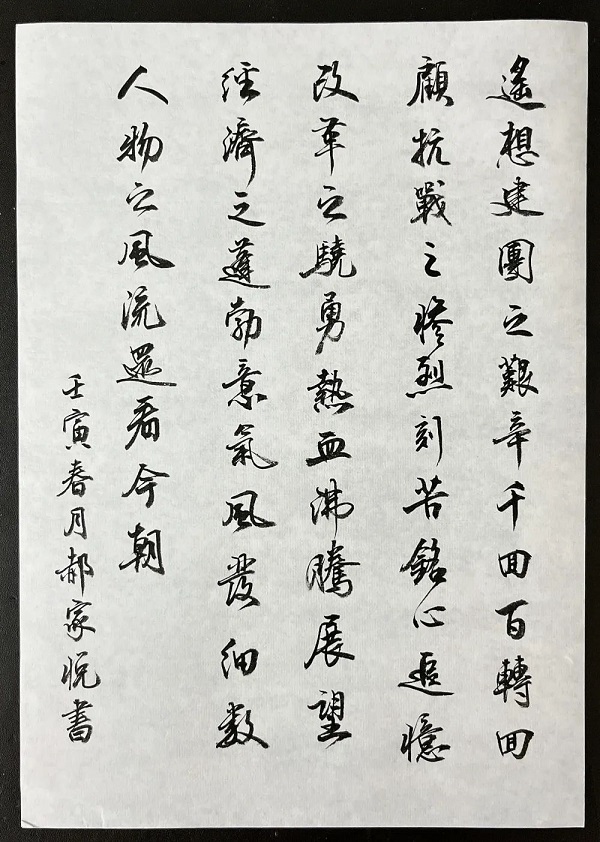 遙想建團之艱辛千回百轉回
顧抗戰之慘烈刻苦銘心追憶
改革之驍勇熱血沸騰展望
經濟之蓬勃意氣風發細数
人物之風流還看今朝
壬寅春月郝家悦書